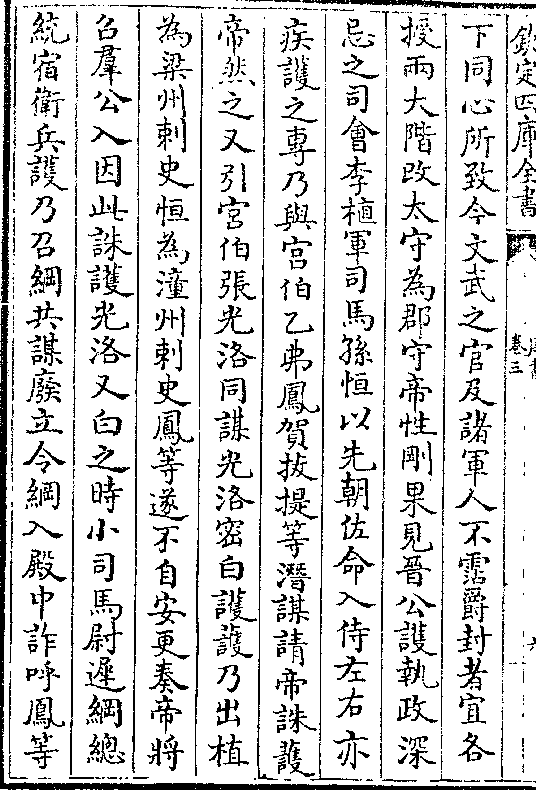 欽定四庫全書
卷三
下同心所致今文武之官及諸軍人不霑爵封者宜各
授兩大階改太守為郡守帝性剛果見晉公護執政深
忌之司會李植軍司馬孫恒以先朝佐命入侍左右亦
疾護之専乃與宫伯乙弗鳳賀拔提等潛謀請帝誅護
帝然之又引宫伯張光洛同謀光洛密白護護乃出植
為梁州刺史恒為潼州刺史鳳等遂不自安更奏帝將
召羣公入因此誅護光洛又白之時小司馬尉遲綱總
統宿衛兵護乃召綱共謀廢立令綱入殿中詐呼鳳等